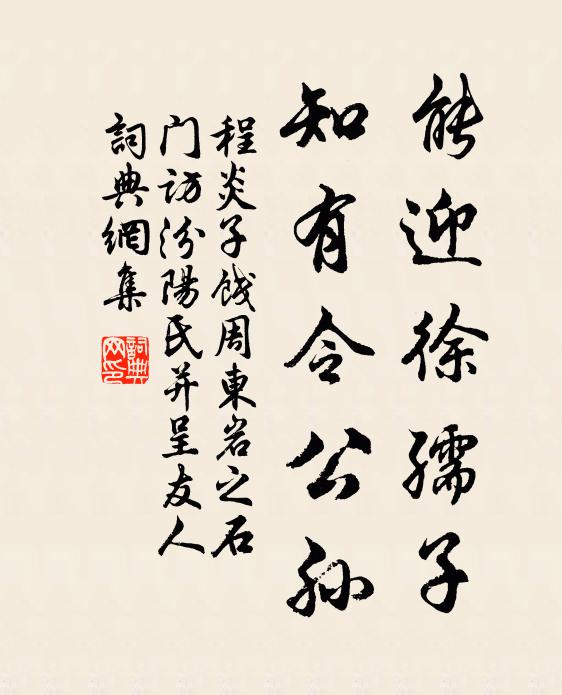 能迎徐孺子
知有令公孙
程炎子饯周東岩之石
门访汾陽氏并呈友人
詞典網集
詞典
网印